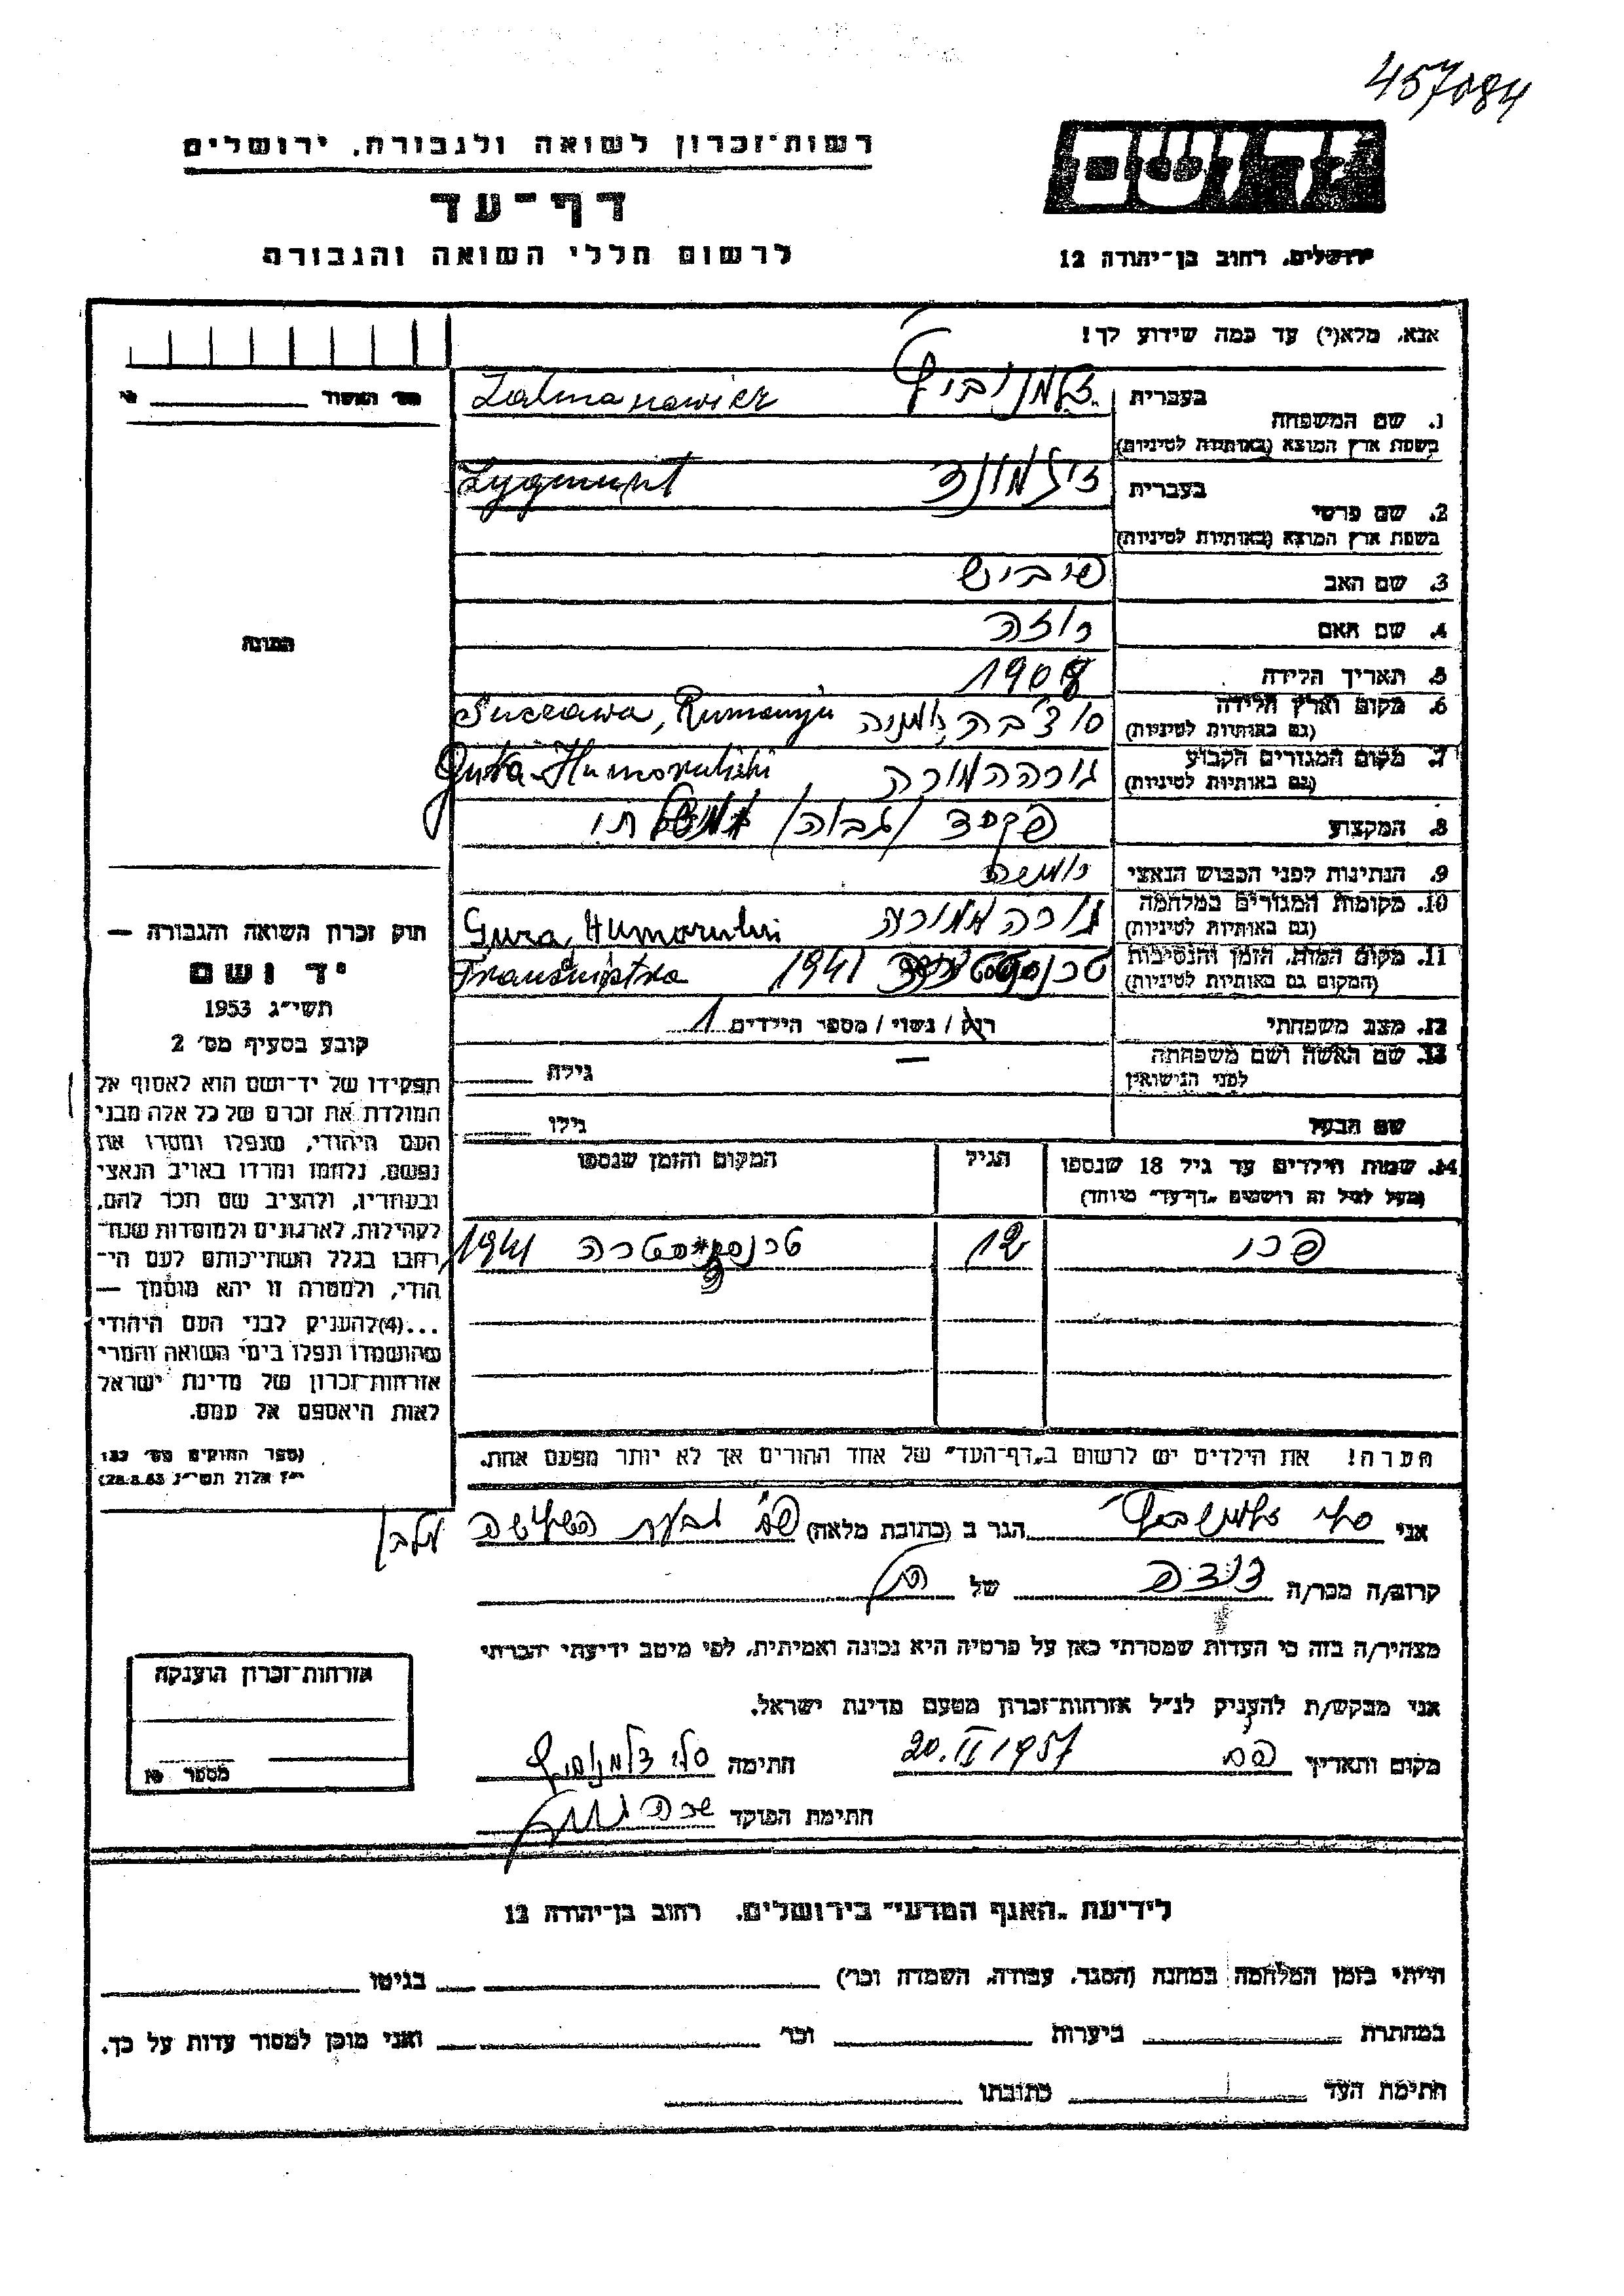 457084
רשות־זכרון לשואה ולגבורה, ירושלים
דף־עד
לרשום חללי השואה והגבורה
ירושלים, רחוב בן־יהודה 12
אנא, מלא(י) עד כמה שידוע לך!
1. שם המשפחה בעברית זלמנוביץ
בשפת ארץ המוצא (באותיות לטיניות) Zalmanowicz
2. שם פרטי בעברית זיגמונד
בשפת ארץ המוצא (באותיות לטיניות) Zygmunt
3. שם האב פייביש
4. שם האם רוזה
5. תאריך הלידה 1908
6. מקום וארץ הלידה סוצ'בה רומניה Suczawa, Rumanja
(גם באותיות לטיניות)
7. מקום המגורים הקבוע גורההמורה Gura-Humorului
(גם באותיות לטיניות)
8. המקצוע פקיד (גבוה) ממשלתי
9. הנתינות לפני הכבוש הנאצי רומניה
10. מקומות המגורים במלחמה גורההמורה Gura, Humorului
(גם באותיות לטיניות)
11. מקום המות, הזמן והנסיבות 1941 Transnistra
(המקום גם באותיות לטיניות)
12. מצב משפחתי רוק / נשוי / מספר הילדים 1
13. שם האשה ושם משפחתה — גילה
לפני הנישואין
שם הבעל גילו
14. שמות הילדים עד גיל 18 שנספו הגיל המקום והזמן שנספו
(מעל לגיל זה רושמים „דף־עד” מיוחד)
12 טרנסניסטרה 1941
הערה! את הילדים יש לרשום ב„דף־העד” של אחד ההורים אך לא יותר מפעם אחת.
מס' האשוד
התמונה
חוק זכרון השואה והגבורה —
יד ושם
תשי״ג 1953
קובע בסעיף מס׳ 2
תפקידו של יד־ושם הוא לאסוף אל
המולדת את זכרם של כל אלה מבני
העם היהודי, שנפלו ומסרו את
נפשם, נלחמו ומרדו באויב הנאצי
ובעוזריו, ולהציב שם וזכר להם,
לקהילות, לארגונים ולמוסדות שנח־
רבו בגלל השתייכותם לעם הי־
הודי, ולמטרה זו יהא מוסמך —
...(4)להעניק לבני העם היהודי
שהושמדו ונפלו בימי השואה והמרי
אזרחות־זכרון של מדינת ישראל
לאות היאספם אל עמם.
(ספר החוקים מס׳ 132
י״ז אלול תשי״ג 28.8.53)
אני סלי זלמנוביץ הגר ב (כתובת מלאה) גבעת השלושה מלבן
קרוב/ה מכר/ה של
מצהיר/ה בזה כי העדות שמסרתי כאן על פרטיה היא נכונה ואמיתית, לפי מיטב ידיעתי והכרתי
אני מבקש/ת להעניק לנ״ל אזרחות־זכרון מטעם מדינת ישראל.
מקום ותאריך 20.II 1957 חתימה סלי זלמנוביץ
חתימת הפוקד
אזרחות־זכרון הוענקה
מספר
לידיעת „האגף המדעי” בירושלים, רחוב בן־יהודה 12
הייתי בזמן המלחמה במחנה (הסגר, עבודה, השמדה וכו׳) בגיטו
במחתרת ביערות וכו׳ ואני מוכן למסור עדות על כך.
חתימת העד כתובתו